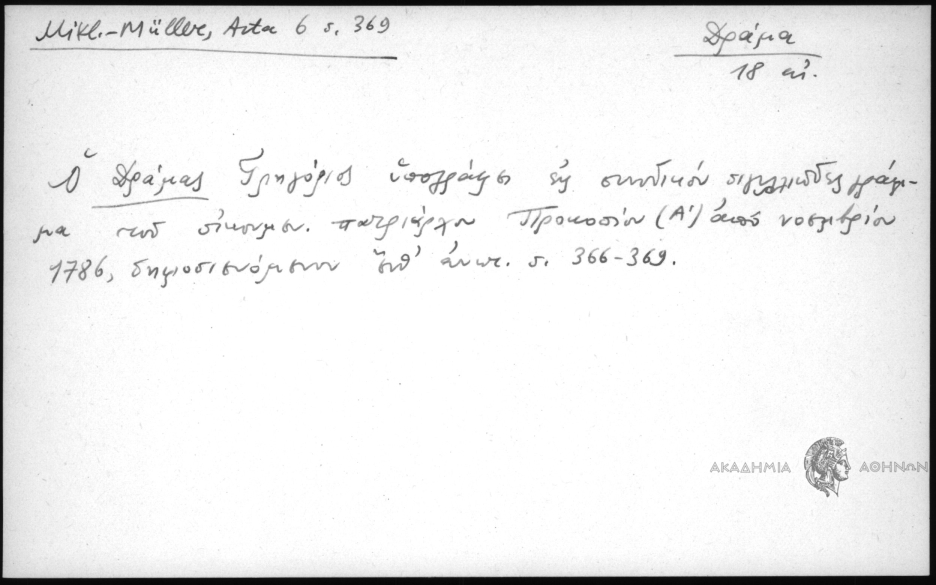 Mikl.-Müller, Acta 6 σ. 369
Δράμα
18 αἰ.
Ὁ Δράμας Γρηγόριος ὑπογράφει εἰς συνοδικόν σιγιλλιῶδες γράμ-
μα τοῦ οἰκουμεν. πατριάρχου Προκοπίου (Α') ἀπό νοεμβρίου
1786, δημοσιευόμενον ἔνθ' ἀνωτ. σ. 366-369.
ΑΚΑΔΗΜΙΑ ΑΘΗΝΩΝ